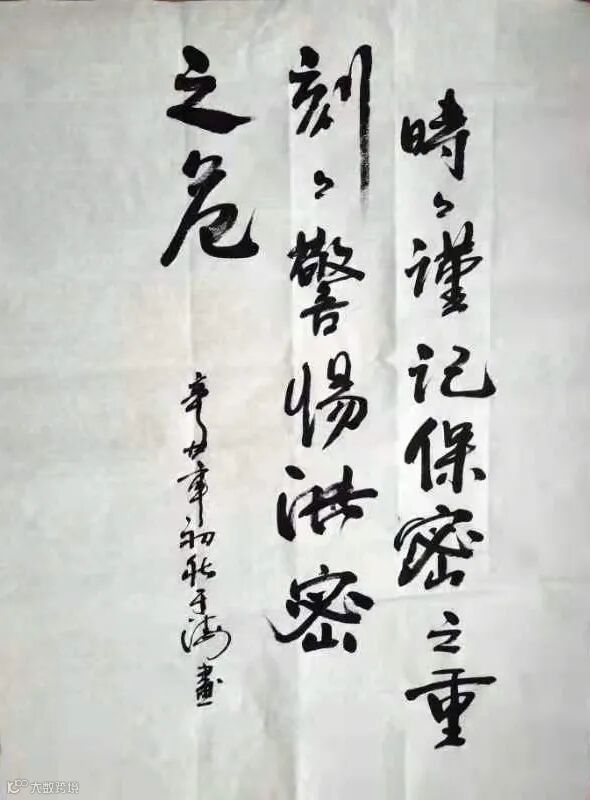 時々謹記保密之重
刻々警惕泄密
之危
辛丑年初秋于海畫
大数跨境